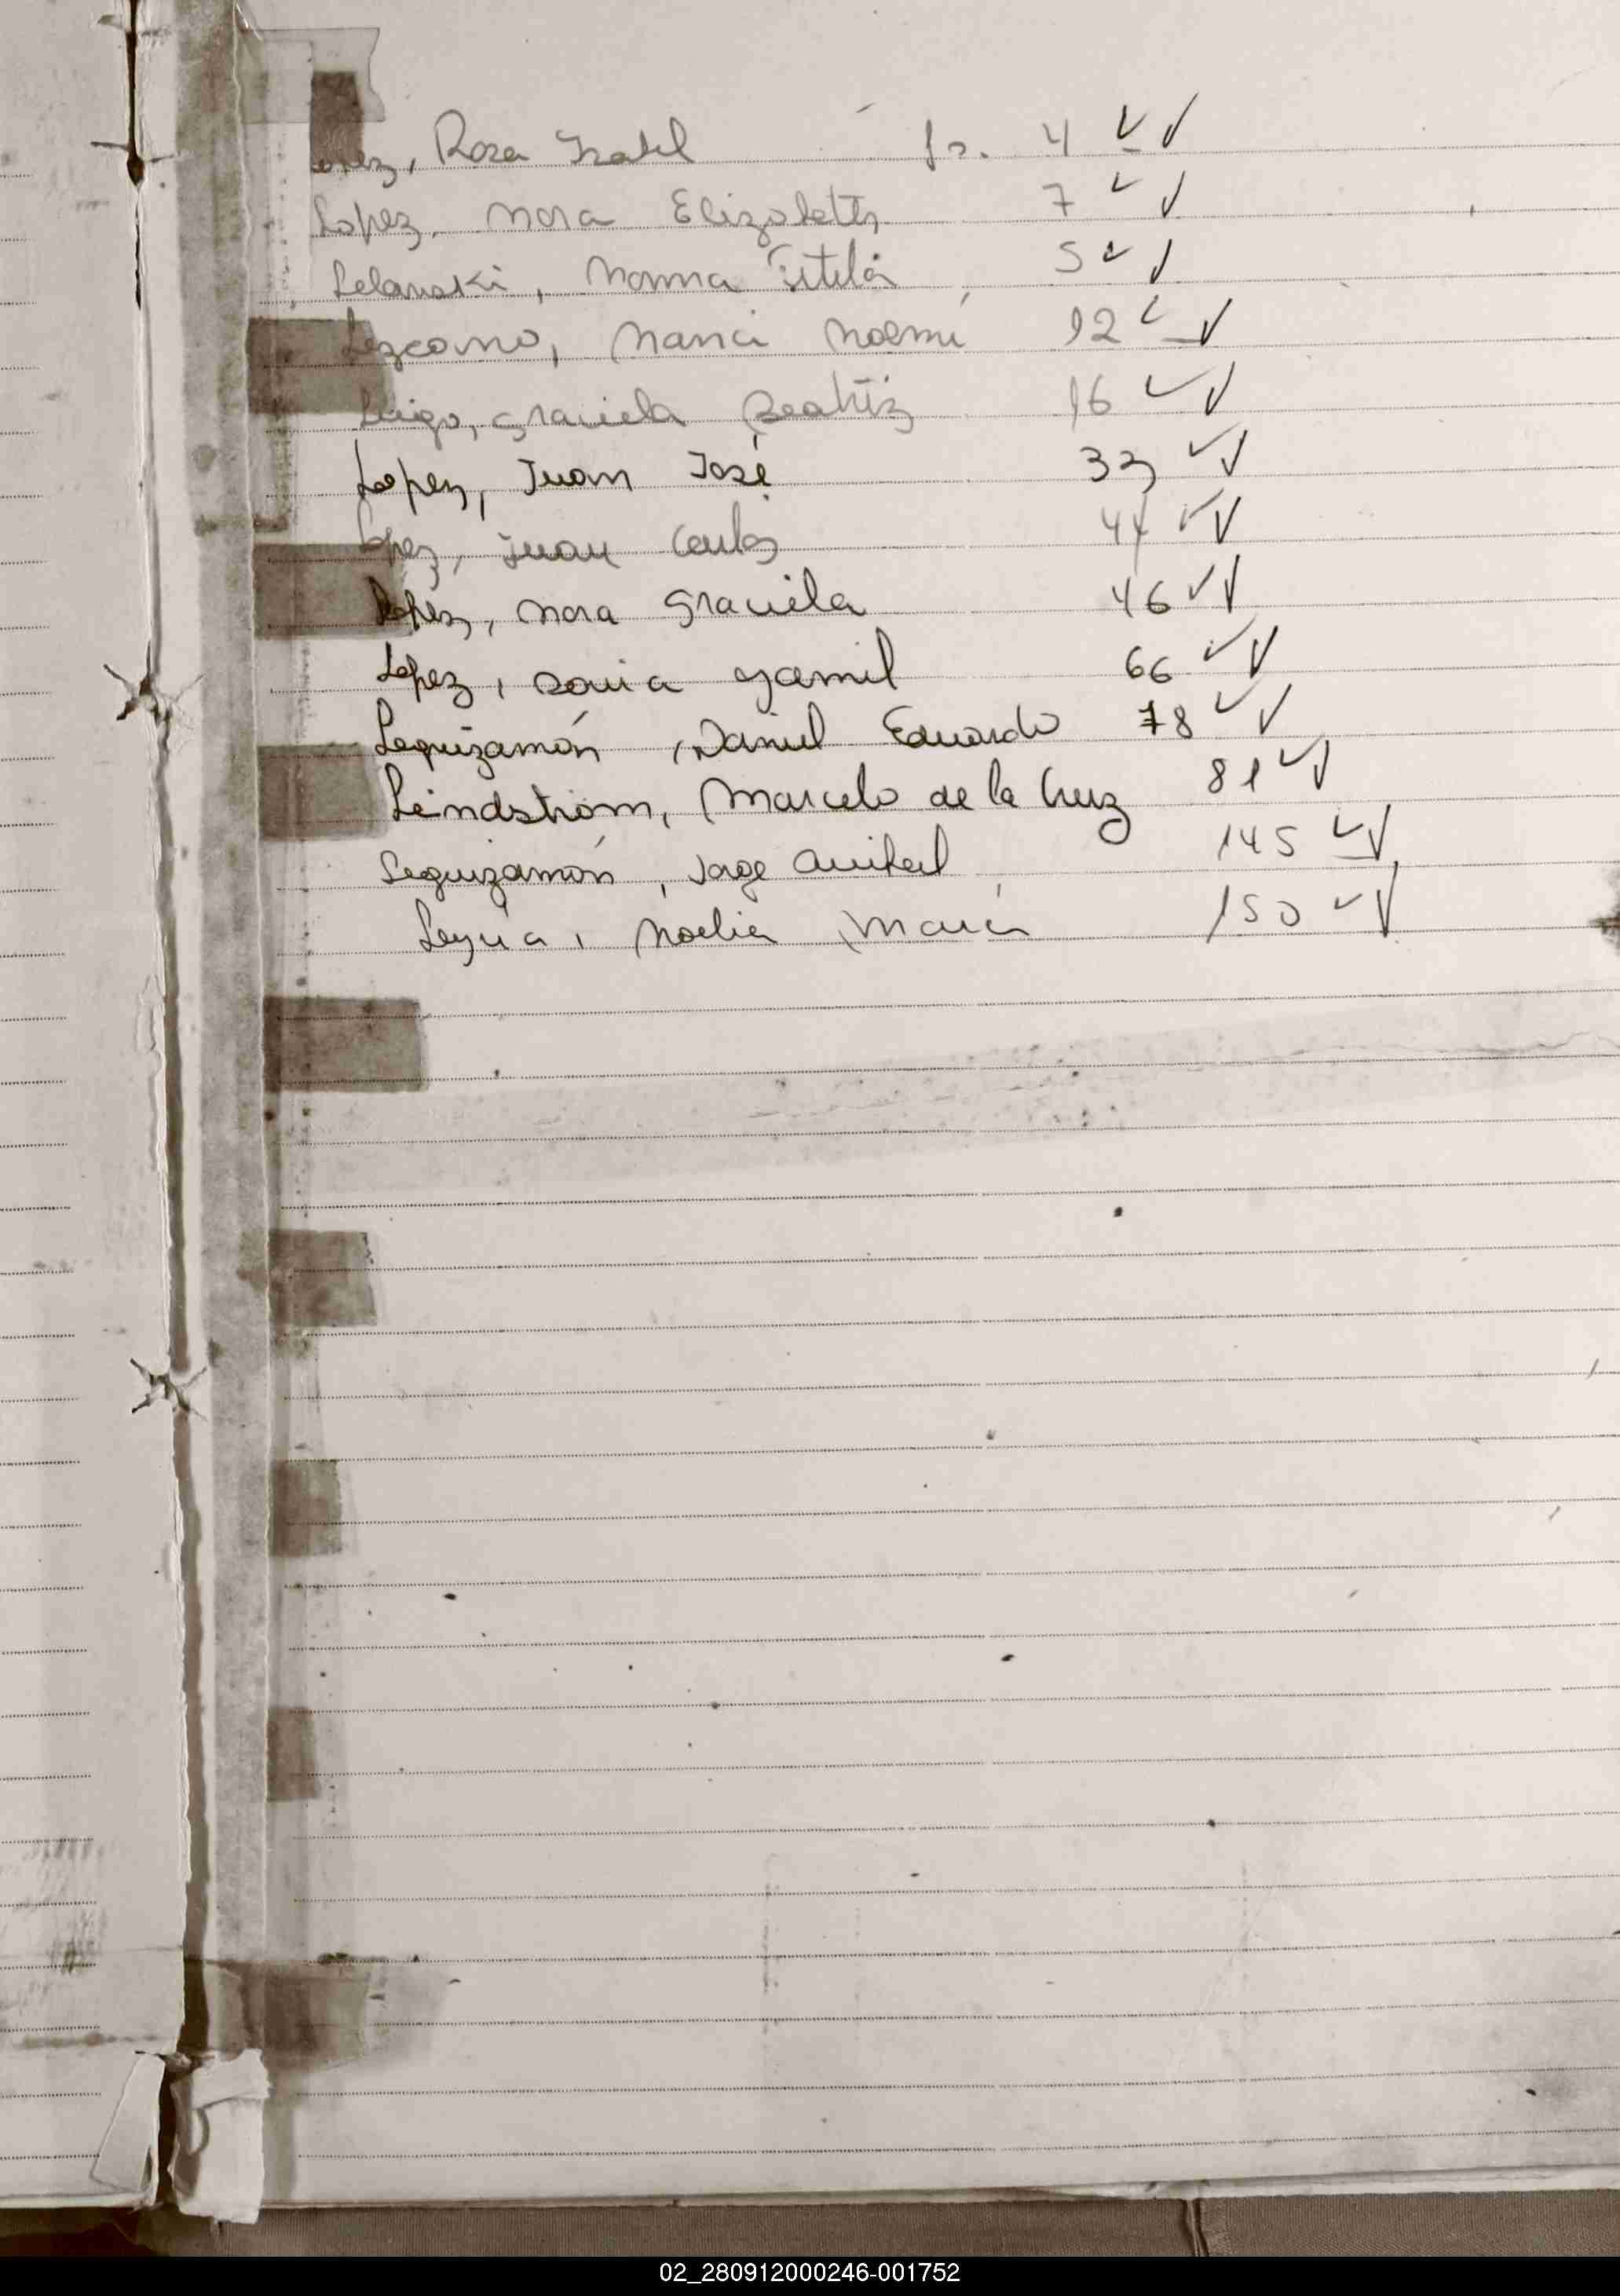 Lopez, Rosa Isabel fs. 4 ✓ ✓
Lopez, Nora Elizabeth 7 ✓ ✓
Lelanski, Norma 5 ✓ ✓
Lezcano, Nanci Noemi 12 ✓ ✓
Graciela Beatriz 16 ✓ ✓
Lopez, Juan José 33 ✓ ✓
Lopez, Juan Carlos 44 ✓ ✓
Lopez, Nora Graciela 46 ✓ ✓
Lopez, Sonia Yamil 66 ✓ ✓
Leguizamón, Daniel Eduardo 78 ✓ ✓
Lindström, Marcelo de la Cruz 81 ✓ ✓
Leguizamón, Jorge Anibal 145 ✓ ✓
Leyria, Noelia María 150 ✓ ✓
02_280912000246-001752